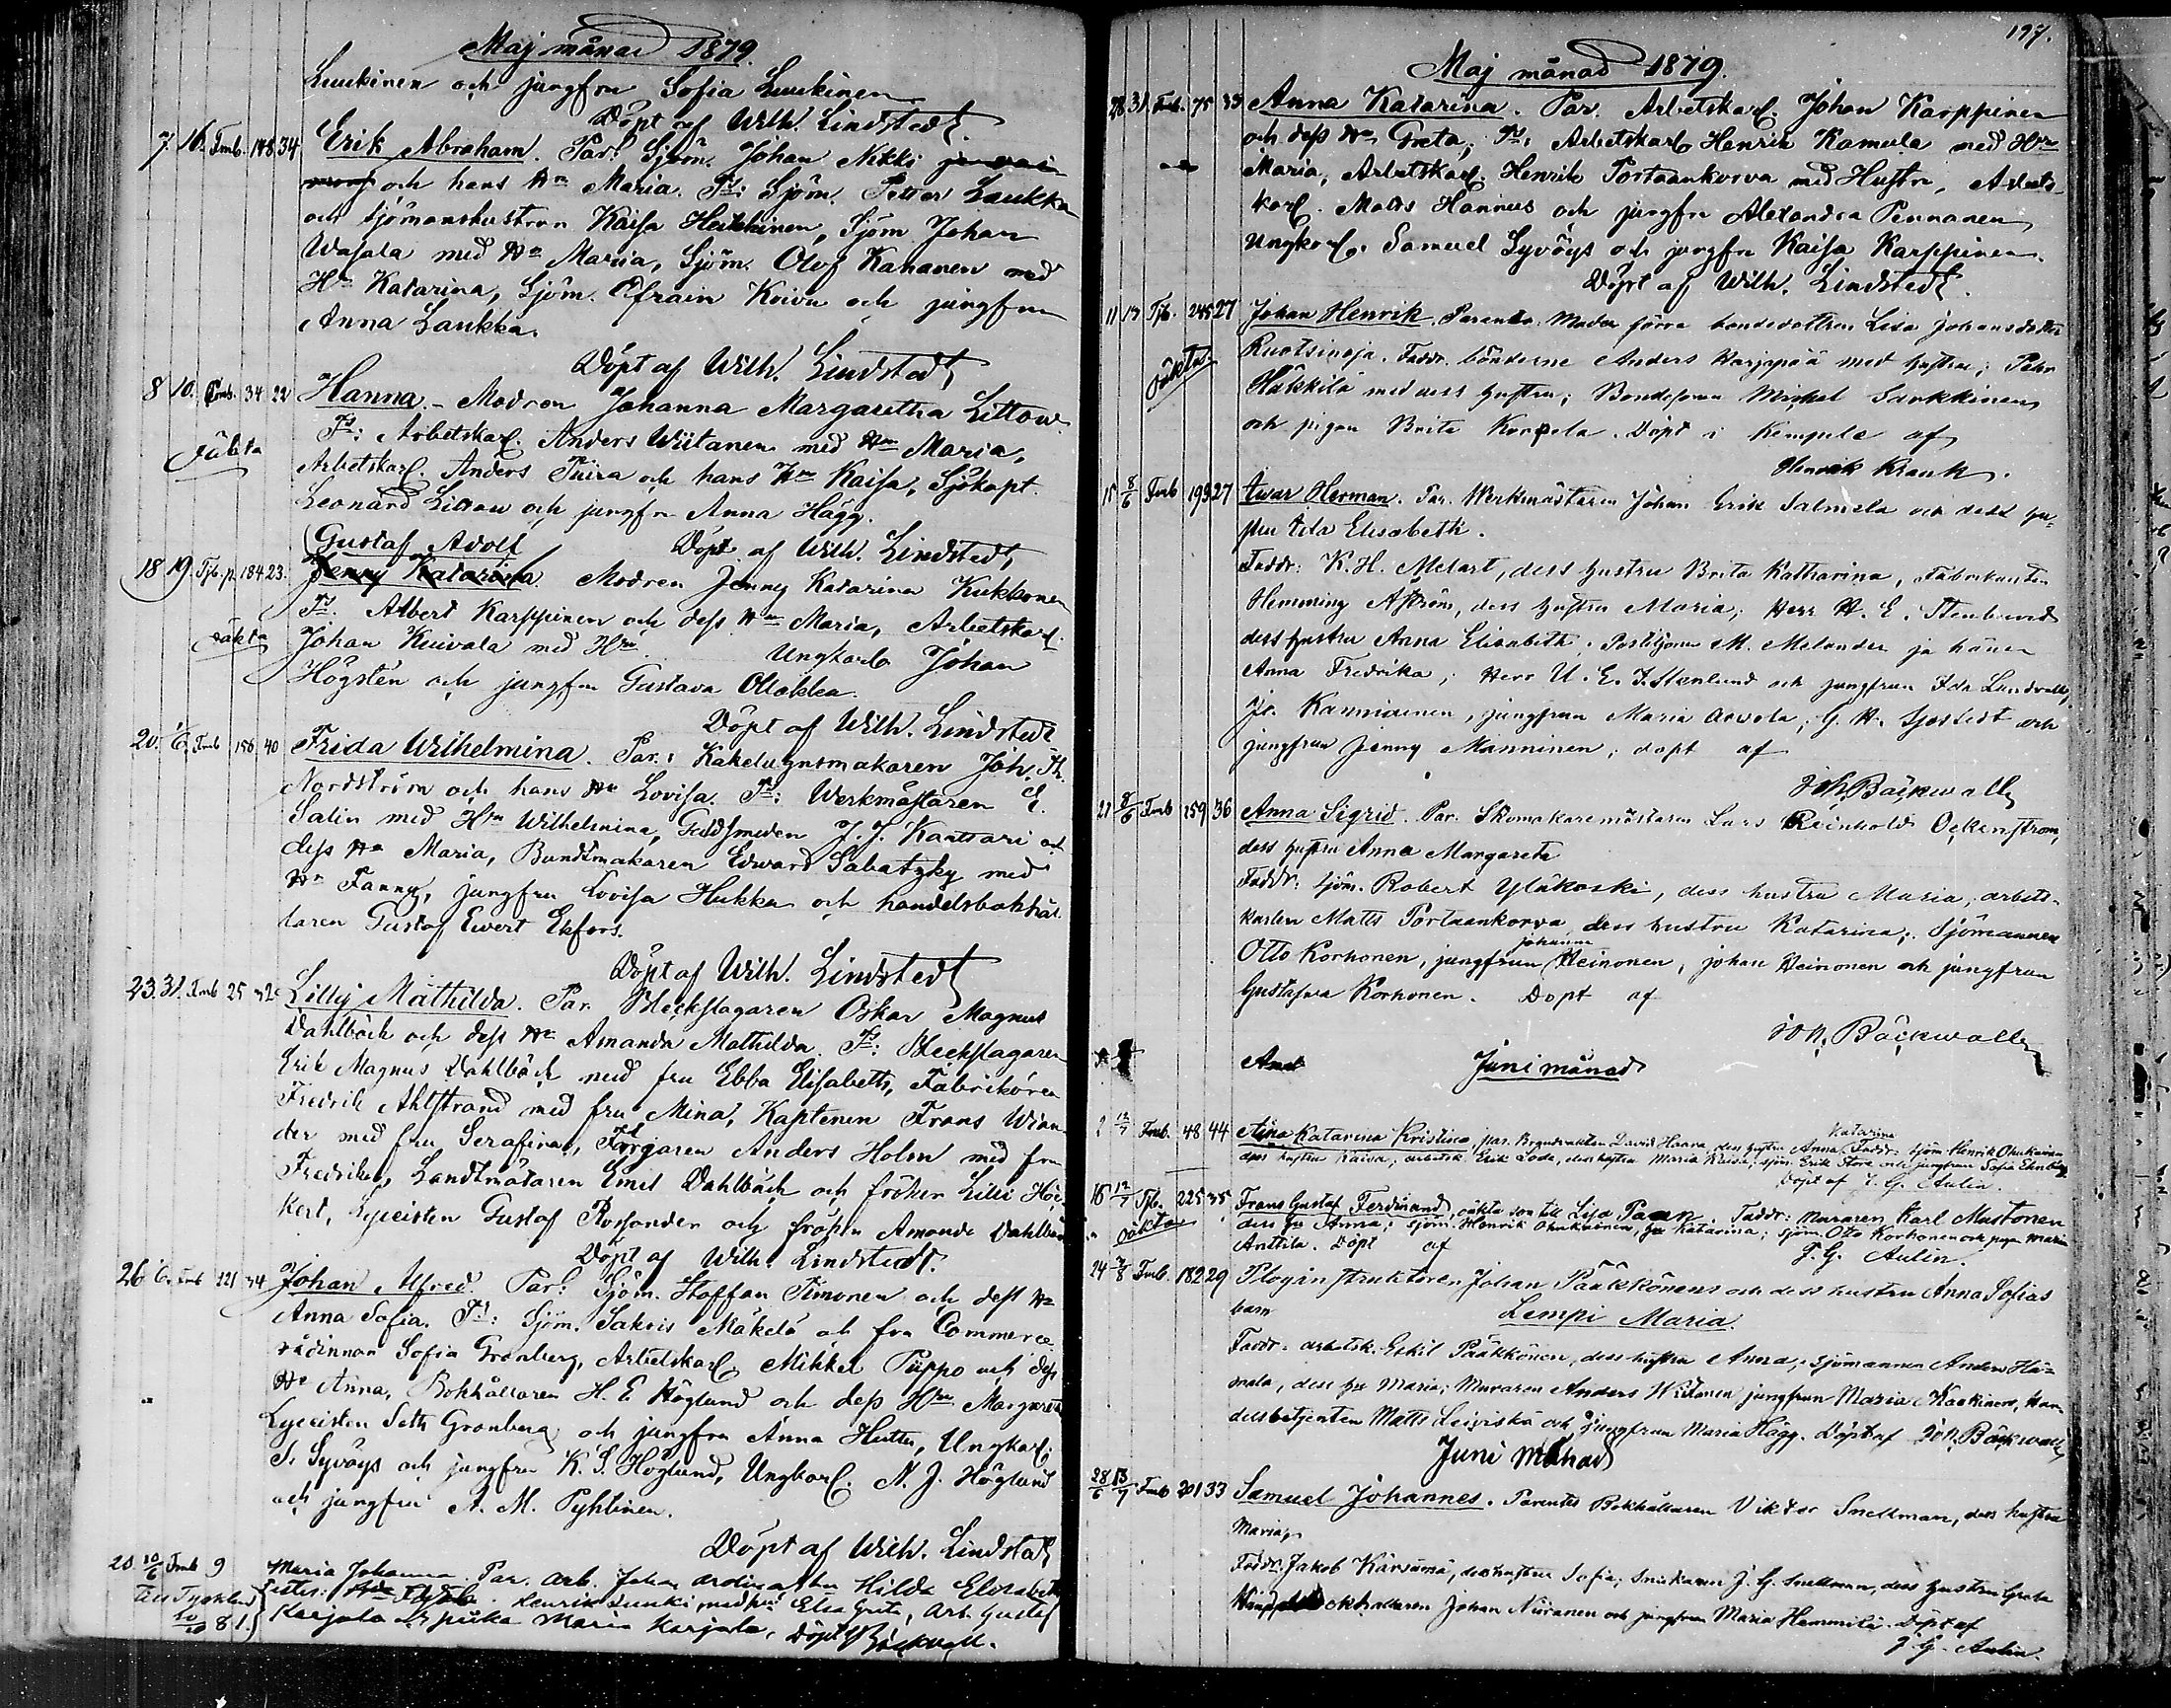 Maj månad 1879.
Luukinen och jungfru Sofia Luukinen
Döpt af Wilh. Lindstedt
7. 16. Fmb. 148 34 Erik Abraham. Par: Sjöm. Johan Nikki
och hans Hu Maria. Fd: Sjöm. Petter Laukka
och Sjömanshustrun Kaisa Heikkinen, Sjöm Johan
Wasala med Hu Maria, Sjöm. Olof Kahanen med
Hu Katarina, Sjöm. Efraim Koivu och jungfru
Anna Laukka.
Döpt af Wilh. Lindstedt
8 10. Fmb. 34 22 Hanna. - Modren Johanna Margaretha Littow
Fd: Arbetskarl. Anders Wiitanen med Hu Maria,
oäkta
Arbetskarl. Anders Tuira och hans Hu Kaisa, Sjökapt.
Leonard Littow och jungfru Anna Hägg.
Gustaf Adolf Döpt af Wilh. Lindstedt
18 19. Fjb. p. 184 23. Jenny Katarina. Modren Jenny Katarina Kukkonen
Fd. Albert Karppinen och dess Hu Maria, Arbetskarl.
oäkta Johan Kuivala med Hu Ungkarl Johan
Högstén och jungfru Gustava Ollakka.
Döpt af Wilh. Lindstedt
20. 1/6. Fmb 156 40 Frida Wilhelmina. Par: Kakelugnsmakaren Joh. Fr.
Nordström och hans Hu Lovisa. Fd: Werkmästaren E.
Salin med Hu Wilhelmina, Guldsmeden J. J. Kantari och
dess Hu Maria, Bundtmakaren Edward Sabatzky med
Hu Fanny, jungfru Lovisa Hukka och handelsbokhål
laren Gustaf Evert Ekfors.
Döpt af Wilh. Lindstedt
23. 31. Fmb 25 32 Lilly Mathilda. Par. Bleckslagaren Oskar Magnus
Dahlbäck och dess Hu Amanda Mathilda. Fd: Bleckslagaren
Erik Magnus Dahlbäck med fru Ebba Elisabeth, Fabrikören
Fredrik Ahlstrand med fru Mina, Kaptenen Frans Wian
der med fru Serafina, Färgaren Anders Holm med fru
Fredrika, Landtmätaren Emil Dahlbäck och fröken Lilli Höc
kert, Lyceisten Gustaf Rosander och fröken Amanda Dahlbäck
Döpt af Wilh. Lindstedt.
26 6. Fmb 221 34 Johan Alfred. Par: Sjöm. Staffan Timonen och dess Hu
Anna Sofia. Fd: Sjöm. Sakris Mäkelä och fru Commerce
rådinnan Sofia Granberg, Arbetskarl. Mikkel Piippo och dess
Hu Anna, Bokhållaren H. E. Höglund och dess Hru Margareta
Lyceisten Seth Granberg och jungfru Anna Hutta, Ungkarl.
S. Syväys och jungfru K. S. Höglund, Ungkarl. N. J. Höglund
och jungfru A. M. Pyhtinen.
Döpt af Wilh. Lindstedt
20. 10/6 Fmb 9 Maria Johanna. Par. arb. Johan Hilda Elisabeth
Henrik Lunki med hu Elsa Greta, arb. Gustaf
81. Karjala och piika Maria Karjala, Döpt Bäckwall.
197.
Maj månad 1879.
28 31. Fmb. 75 33 Anna Katarina. Par. Arbetskarl. Johan Karppinen
och dess Hu Greta, Fd: Arbetskarl Henrik Kamula med Hru
Maria, Arbetskarl. Henrik Portaankorva med Hustru, Arbets
karl. Matts Hannus och jungfru Alexandra Pennanen,
Ungkarl. Samuel Syväys och jungfru Kaisa Karppinen.
Döpt af Wilh. Lindstedt.
11 17 Fjb. 245 27 Johan Henrik. Parentes. Modr förra bondedottren Lisa Johansdotter
oäkta
Ruotsinoja. Faddr. bönderne Anders Harjapää med hustru; Petr
Häkkilä med dess hustru; Bondesonen Mickel Sarkkinen
och pigan Brita Korpela. Döpt i Kempele af
Henrik Krank.
15 8/6 Fmb 193 27 Ivar Herman. Par. Werkmästaren Johan Erik Salmela och dess hu-
stru Ida Elisabeth.
Faddr: K. H. Melart, dess hustru Brita Katharina, Fabrikanten
Hemming Åström, dess hustru Maria; Herr H. E. Stenlund
dess hustru Anna Elisabeth; Postiljonen M. Melander ja hänen
Anna Fredrika; Herr U. E. J. Stenlund och jungfrun Ida Lundvall,
Jr. Kanniainen, jungfrun Maria Arvola; G. H. Sjöstedt och
jungfrun Jenny Manninen; döpt af
Joh. Bäckwall
21 8/6 Fmb 159 36 Anna Sigrid. Par. Skomakaremästaren Lars Reinhold Ockenström,
dess hustru Anna Margareta
Faddr: Sjöm. Robert Ylikoski, dess hustru Maria, arbets-
karlen Matts Portaankorva, dess hustru Katarina; Sjömannen
Johanna
Otto Korhonen, jungfrun Heinonen, Johan Heinonen och jungfrun
Gustafva Korhonen. Döpt af
Joh. Bäckwall
Juni månad
2 12/7 Fmb. 48 44 Aina Katarina Kristina, par. Brandvakten David Haana, dess hustru Anna Katarina Faddr. Sjöm Henrik Ohukainen
dess hustru Kaisa, arbetsk. Erik Lode, dess hustru Maria Kaisa, sjöm. Erik Store och jungfrun Sofia Ehnberg.
Döpt af J. G. Aulin.
16 12/7 Fjb. 225 35 Frans Gustaf Ferdinand, oäkta son till Lisa Faddr: Muraren Karl Mustonen
oäkta dess hu Anna; Sjöm. Henrik Ohukainen, hu Katarina; Sjöm. Otto Korhonen och pigan Maria
Anttila. Döpt af J. G. Aulin.
24 3/8 Fmb. 182 29 Ploginstruktören Johan Pääkkönens och dess hustru Anna Sofias
barn Lempi Maria.
Faddr. arbetsk. Eskil Pääkkönen, dess hustru Anna, Sjömannen Anders Hä-
mälä, dess hu Maria; Muraren Anders Wiitanen jungfrun Maria Kaakinen, han
delsbetjenten Matts Leiviskä och jungfrun Maria Hägg. Döpt af Joh. Bäckwall
Juni månad
28/6 13/7 Fmb 201 33 Samuel Johannes. Parentes Bokhållaren Viktor Snellman, dess hustru
Maria,
Faddr. Jakob Kärsämä, dess hustru Sofia; Snickaren J. G. Snellman, dess hustru Greta
Johan Niiranen och jungfrun Maria Hemmilä. Döpt af
J. G. Aulin.